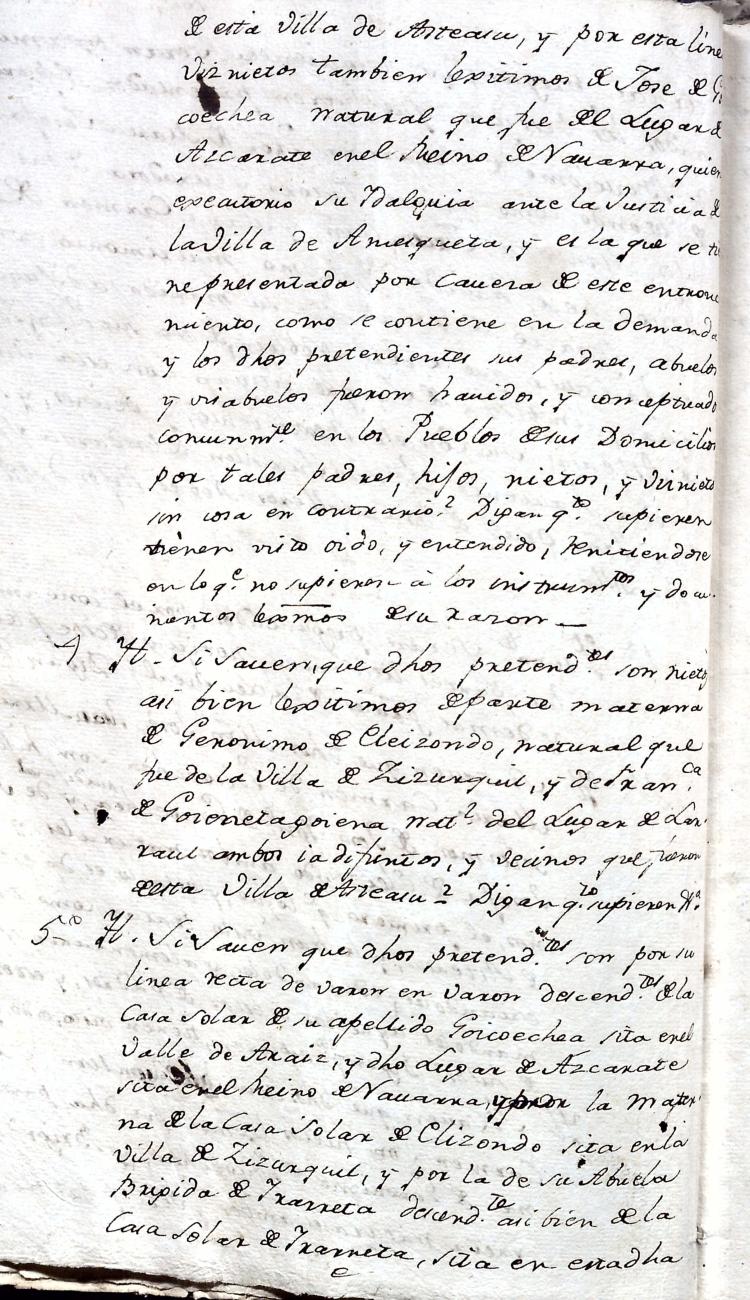 de esta Villa de Asteasu, y por esta line
Viznietos tambien lexitimos de Jose de Go
coechea natural que fue del Lugar de
Azcarate en el Reino de Navarra, quien
executorio su Ydalguia ante la Justicia de
la Villa de Amesqueta, y es la que se
representada por Cavera de este entronc
miento, como se contiene en la demanda
y los dhos pretendientes sus padres, abuelos
y visabuelos fueron havidos, y conceptuado
comunmte. en los Pueblos de sus Domicilios
por tales padres, hijos, nietos, y viznietos
sin cosa en contrario? Digan qto. supieren
tienen visto oido, y entendido, Remitiendose
en lo qe. no supieren à los instrumtos. y docu-
mentos lexmos de su razon —
4 Yt. Si Saven, que dhos pretendtes. son nietos
asi bien lexitimos de parte materna
de Geronimo de Eleizondo, natural que
fue de la Villa de Zizurquil, y de Franca.
de Goienetagoiena natl. del Lugar de Lar-
raul ambos ia difuntos, y vecinos que fueron
de esta Villa de Asteasu? Digan qto. supieren &a.
5º Yt. Si Saven que dhos pretendtes. son por su
linea recta de varon en varon descendtes. de la
Casa Solar de su apellido Goicoechea sita en el
Valle de Araiz, y dho Lugar de Azcarate
sita en el Reino de Navarra, y por la mater-
na de la Casa Solar de Elizondo sita en la
Villa de Zizurquil, y por la de su Abuela
Brigida de Yrarreta descendte. asi bien de la
Casa Solar de Yrarreta, sita en esta dha